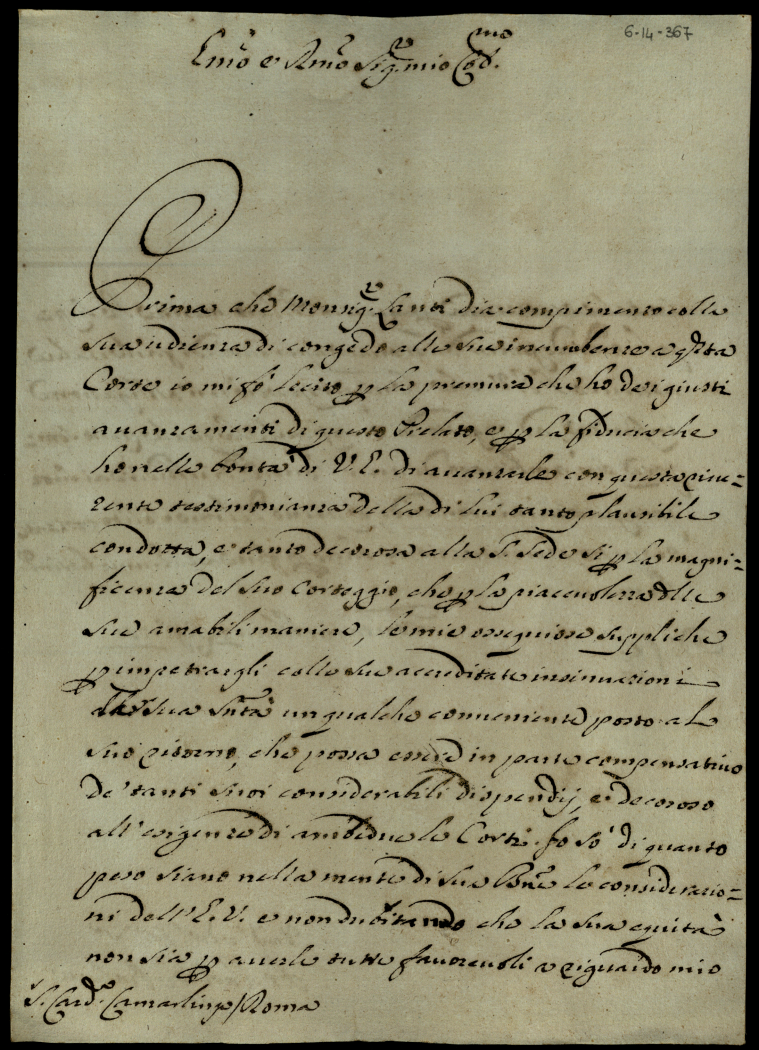 6-14-367
Emo e Rmo Sigre mio Colmo
Prima che Monsigre Santi dia compimento colla
sua udienza di congedo alle sue incumbenze a qsta
Corte io mi fò lecito p la premura che ho dei giusti
avanzamenti di questo Prelato, e p la fiducia che
ho nelle bontà di V. E. di avanzarle con questa rive=
rente testimonianza della di lui tanto plausibile
condotta, e tanto decorosa alla S. Sede sì p la magni=
ficenza del suo Corteggio, che p la piacevolezza delle
sue amabili maniere, le mie ossequiose suppliche
p impetrargli colle sue accreditate insinuazioni
sua Sntà un qualche conveniente posto al
suo ritorno, che possa essere in parte compensativo
de' tanti suoi considerabili dispendij, e decoroso
all'esigenze di ambedue le Corti. Io sò di quanto
peso siano nella mente di sua Bne le considerazio=
ni dell'E. V. e non dubitando che la sua equità
non sia p averle tutte favorevoli a riguardo mio
S. Card. Camarlingo / Roma